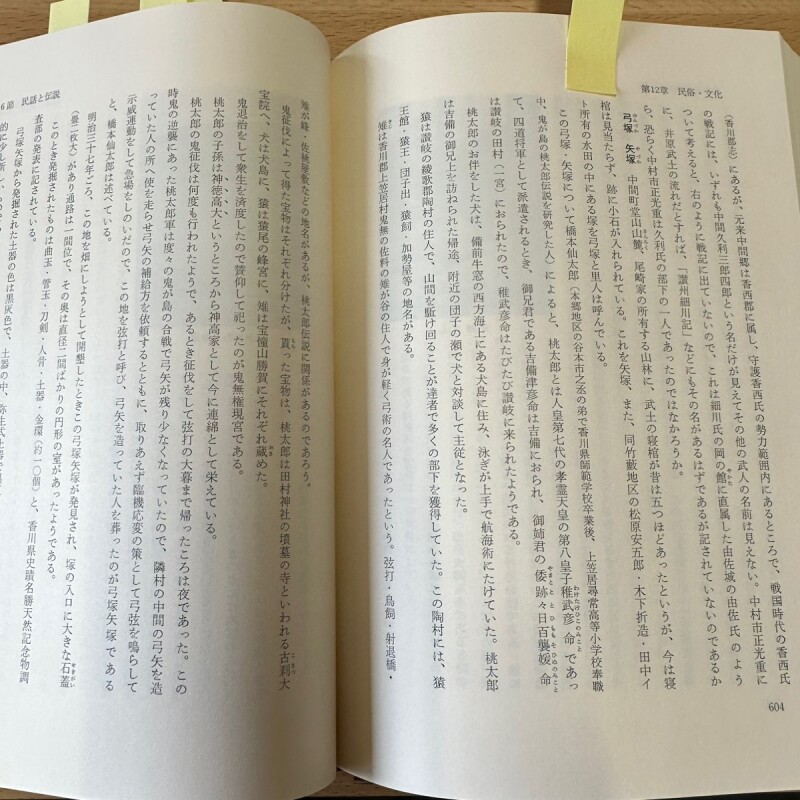 第12章　民俗・文化
（香川郡志）にあるが、元来中間郷は香西郡に属し、守護香西氏の勢力範囲内にあるところで、戦国時代の香西氏
の戦記には、いずれも中間久利三郎四郎という名だけが見えてその他の武人の名前は見えない。中村市正光重に
ついて考えると、右のように戦記に出ていないので、これは細川氏の岡の館に直属した由佐城の由佐氏のよう
に、井原武士の流れだとすれば、「讃州細川記」などにもその名があるはずであるが記されていないのであるか
ら、恐らく中村市正光重は久利氏の部下の一人であったのではなかろうか。
弓塚　矢塚　中間町堂山山麓、尾崎家の所有する山林に、武士の寝棺が昔は五つほどあったというが、今は寝
棺は見当たらず、跡に小石が入れられている。これを矢塚、また、同竹藪地区の松原安五郎・木下折造・田中イ
ト所有の水田の中にある塚を弓塚と里人は呼んでいる。
この弓塚・矢塚について橋本仙太郎（本郷地区の谷本市之丞の弟で香川県師範学校卒業後、上笠居尋常高等小学校奉職
中、鬼が島の桃太郎伝説を研究した人）によると、桃太郎とは人皇第七代の孝霊天皇の第八皇子稚武彦命であっ
て、四道将軍として派遣されるとき、御兄君である吉備津彦命は吉備におられ、御姉君の倭跡々日百襲媛命
は讃岐の田村（一宮）におられたので、稚武彦命はたびたび讃岐に来られたようである。
桃太郎のお伴をした犬は、備前牛窓の西方海上にある犬島に住み、泳ぎが上手で航海術にたけていた。桃太郎
は吉備の御兄上を訪ねられた帰途、附近の団子の瀬で犬と対談して主従となった。
猿は讃岐の綾歌郡陶村の住人で、山間を駈け回ることが達者で多くの部下を獲得していた。この陶村には、猿
王館・猿王・団子出・猿飼・加勢屋等の地名がある。
雉は香川郡上笠居村鬼無の佐料の雉が谷の住人で身が軽く弓術の名人であったという。弦打・鳥飼・射退橋・
604
6節　民話と伝説
雉が峰・佐桃屋敷などの地名があるが、桃太郎伝説に関係があるのであろう。
鬼征伐によって得た宝物はそれぞれ分けたが、貰った宝物は、桃太郎は田村神社の墳墓の寺といわれる古刹大
宝院へ、犬は犬島に、猿は猿尾の峰宮に、雉は宝僮山勝賀にそれぞれ蔵めた。
鬼退治をして衆生を済度したので賛仰して祀ったのが鬼無権現宮である。
桃太郎の子孫は神徳高大というところから神高家として今に連綿として栄えている。
桃太郎の鬼征伐は何度も行われたようで、あるとき征伐をして弦打の大幕まで帰ったころは夜であった。この
時鬼の逆襲にあった桃太郎軍は度々の鬼が島の合戦で弓矢が残り少なくなっていたので、隣村の中間の弓矢を造
っていた人の所へ使を走らせ弓矢の補給方を依頼するとともに、取りあえず臨機応変の策として弓弦を鳴らして
示威運動をして急場をしのいだので、この地を弦打と呼び、弓矢を造っていた人を葬ったのが弓塚矢塚である
と、橋本仙太郎は述べている。
明治三十七年ごろ、この地を畑にしようとして開墾したときこの弓塚矢塚が発見され、塚の入口に大きな石蓋
（畳二枚大）があり通路は一間位で、その奥は直径二間ばかりの円形の室があったようである。
このとき発掘されたものは曲玉・管玉・刀剣・人骨・土器・金環（約一〇個）と、香川県史蹟名勝天然記念物調
査部の発表に記されている。
弓塚矢塚から発掘された土器の色は黒灰色で、土器の中、弥生式土器で